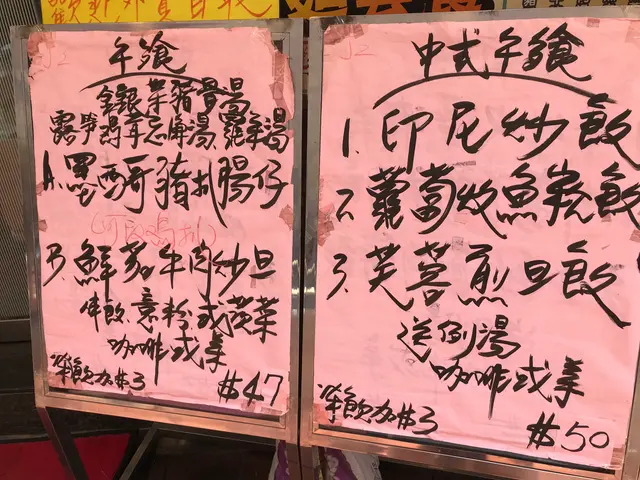 午餐
金銀菜豬骨湯
露笋鸡茸忌廉湯.羅宋湯
A.墨西哥豬扒腸仔
B.鮮茄牛肉炒旦
伴飯.意粉或蔬菜
咖啡或茶
凍飲加$3 $47
中式午餐
1.印尼炒飯
2.蘿蔔炆魚崧飯
3.芙蓉煎旦飯
送例湯
咖啡或茶
凍飲加$3
$50